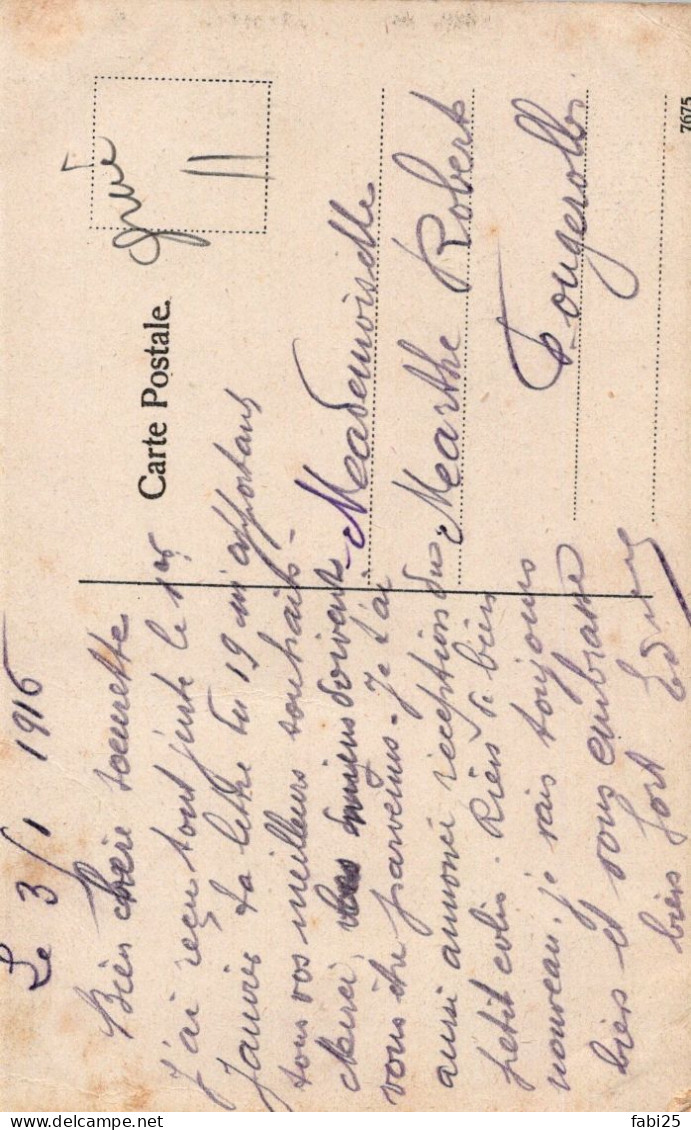 Le 3/1 1916
Bien chère soeurette
J'ai reçu tout juste le 1er
Janvier ta lettre du 19 m'apportant
tous vos meilleurs souhaits -
les miens doivent
vous être parvenus - Je t'ai
aussi annoncé réception du
petit colis. Rien de bien
nouveau, je vais toujours
bien et vous embrasse
bien fort
Carte Postale.
Mademoiselle
Marthe Robert
Fougerolles
7675
fabi25